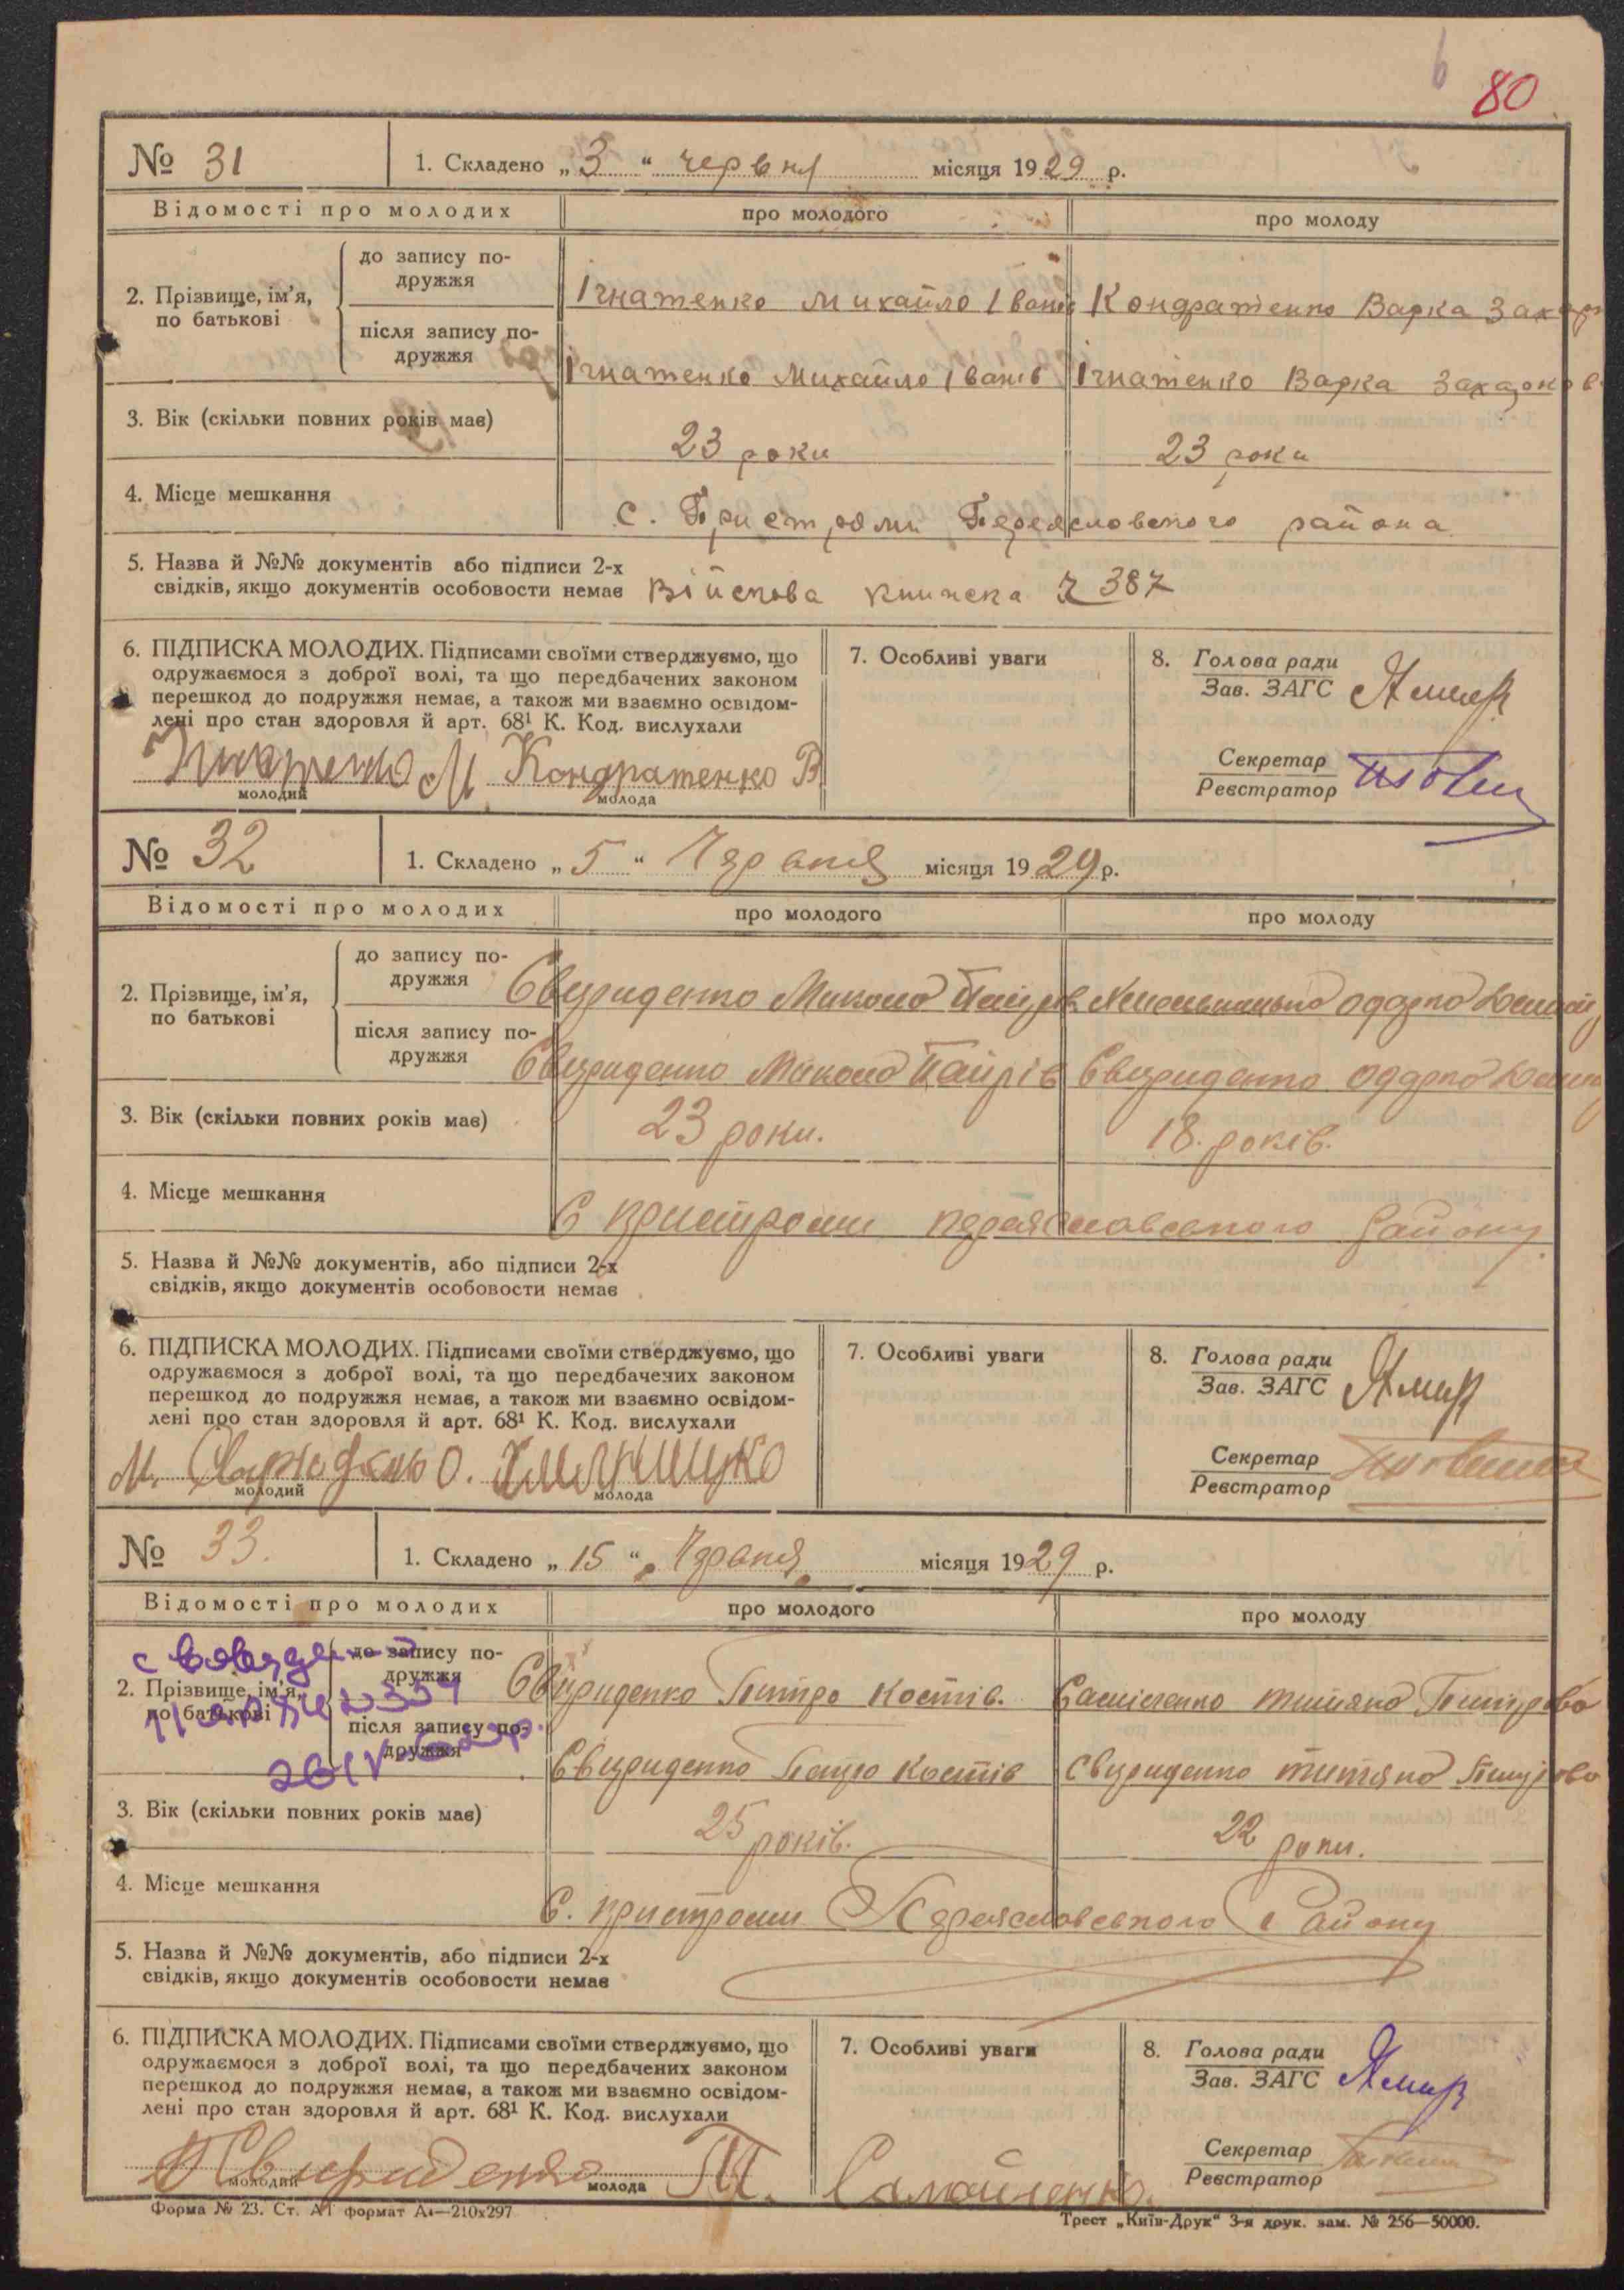 80
№ 31 1. Складено „ 3 “ червня місяця 1929 р.
Відомості про молодих про молодого про молоду
2. Прізвище, ім’я, по батькові
до запису подружжя Ігнатенко Михайло Іванів Кондратенко Варка Захар
після запису подружжя Ігнатенко Михайло Іванів Ігнатенко Варка Захаров
3. Вік (скільки повних років має) 23 роки 23 роки
4. Місце мешкання с. Пристроми Переясловского района
5. Назва й №№ документів або підписи 2-х
свідків, якщо документів особовости немає Війскова книжка 387
6. ПІДПИСКА МОЛОДИХ. Підписами своїми стверджуємо, що
одружаємося з доброї волі, та що передбачених законом
перешкод до подружжя немає, а також ми взаємно освідом-
лені про стан здоровля й арт. 68¹ К. Код. вислухали
М Кондратенко В
молодий молода
7. Особливі уваги
8. Голова ради
Зав. ЗАГС
Секретар
Реєстратор
№ 32 1. Складено „ 5 “ Червня місяця 1929 р.
Відомості про молодих про молодого про молоду
2. Прізвище, ім’я, по батькові
до запису подружжя Свириденко Микола Одарка
після запису подружжя Свириденко Микола Свириденко Одарка
3. Вік (скільки повних років має) 23 роки. 18. років.
4. Місце мешкання С пристроми переясловського Району
5. Назва й №№ документів, або підписи 2-х
свідків, якщо документів особовости немає
6. ПІДПИСКА МОЛОДИХ. Підписами своїми стверджуємо, що
одружаємося з доброї волі, та що передбачених законом
перешкод до подружжя немає, а також ми взаємно освідом-
лені про стан здоровля й арт. 68¹ К. Код. вислухали
М. О.
молодий молода
7. Особливі уваги
8. Голова ради
Зав. ЗАГС
Секретар
Реєстратор
№ 33. 1. Складено „ 15 “ Червня місяця 1929 р.
Відомості про молодих про молодого про молоду
2. Прізвище, ім’я, по батькові
до запису подружжя Свириденко Петро Костів.
після запису подружжя Свириденко Петро Костів Свириденко
3. Вік (скільки повних років має) 25 років. 22 роки.
4. Місце мешкання С. пристроми Переясловського Району
5. Назва й №№ документів, або підписи 2-х
свідків, якщо документів особовости немає
6. ПІДПИСКА МОЛОДИХ. Підписами своїми стверджуємо, що
одружаємося з доброї волі, та що передбачених законом
перешкод до подружжя немає, а також ми взаємно освідом-
лені про стан здоровля й арт. 68¹ К. Код. вислухали
П Свириденко Т. Самойленко.
молодий молода
7. Особливі уваги
8. Голова ради
Зав. ЗАГС
Секретар
Реєстратор
Форма № 23. Ст. А1 формат А4—210х297
Трест „Київ-Друк“ 3-я друк. зам. № 256—50000.